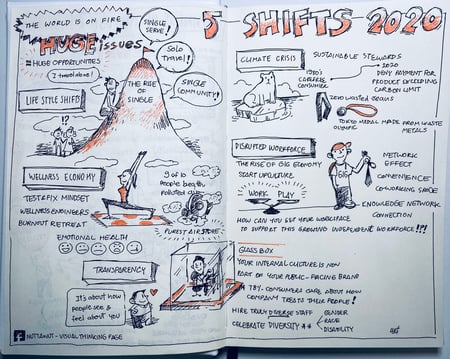 THE WORLD IS ON FIRE
HUGE issues
# HUGE OPPORTUNITIES
I travel alone!
LIFESTYLE SHIFTS
!?
THE RISE OF SINGLE
SINGLE SERVE!
Solo Travel!
SINGLE COMMUNITY!
WELLNESS ECONOMY
TEST & FIX MINDSET
WELLNESS ENGINEERS
BURNOUT RETREAT
EMOTIONAL HEALTH
9 of 10
People breath
Polluted air
PUREST AIR STORE
TRANSPARENCY
It's about how
people see &
feel about you
NUTTANUT - VISUAL THINKING PAGE
5 SHIFTS 2020
CLIMATE CRISIS
SUSTAINABLE STEWARDS
1980's
CAREFREE
CONSUMER
2020
DENY PAYMENT FOR
PRODUCT EXCEEDING
CARBON LIMIT
ZERO WASTED BEANS
TOKYO MEDAL MADE FROM WASTE
OLYMPIC METALS
DISRUPTED WORKFORCE
THE RISE OF GIG ECONOMY
START UPCULTURE
WORK PLAY
GIG
NETWORK
EFFECT
CONVENIENCE
CO-WORKING SPACE
KNOWLEDGE NETWORK
CONNECTION
HOW CAN YOU USE YOUR WORKPLACE
TO SUPPORT THIS GROUND INDEPENDENT WORKFORCE !!?!
GLASS BOX
YOUR INTERNAL CULTURE IS NOW
PART OF YOUR PUBLIC-FACING BRAND
CONSUMERS CARE ABOUT HOW
COMPANY TREATS THEIR PEOPLE!
HIRE TRULY DIVERSE STAFF
CELEBRATE DIVERSITY
GENDER
RACE
DISABILITY